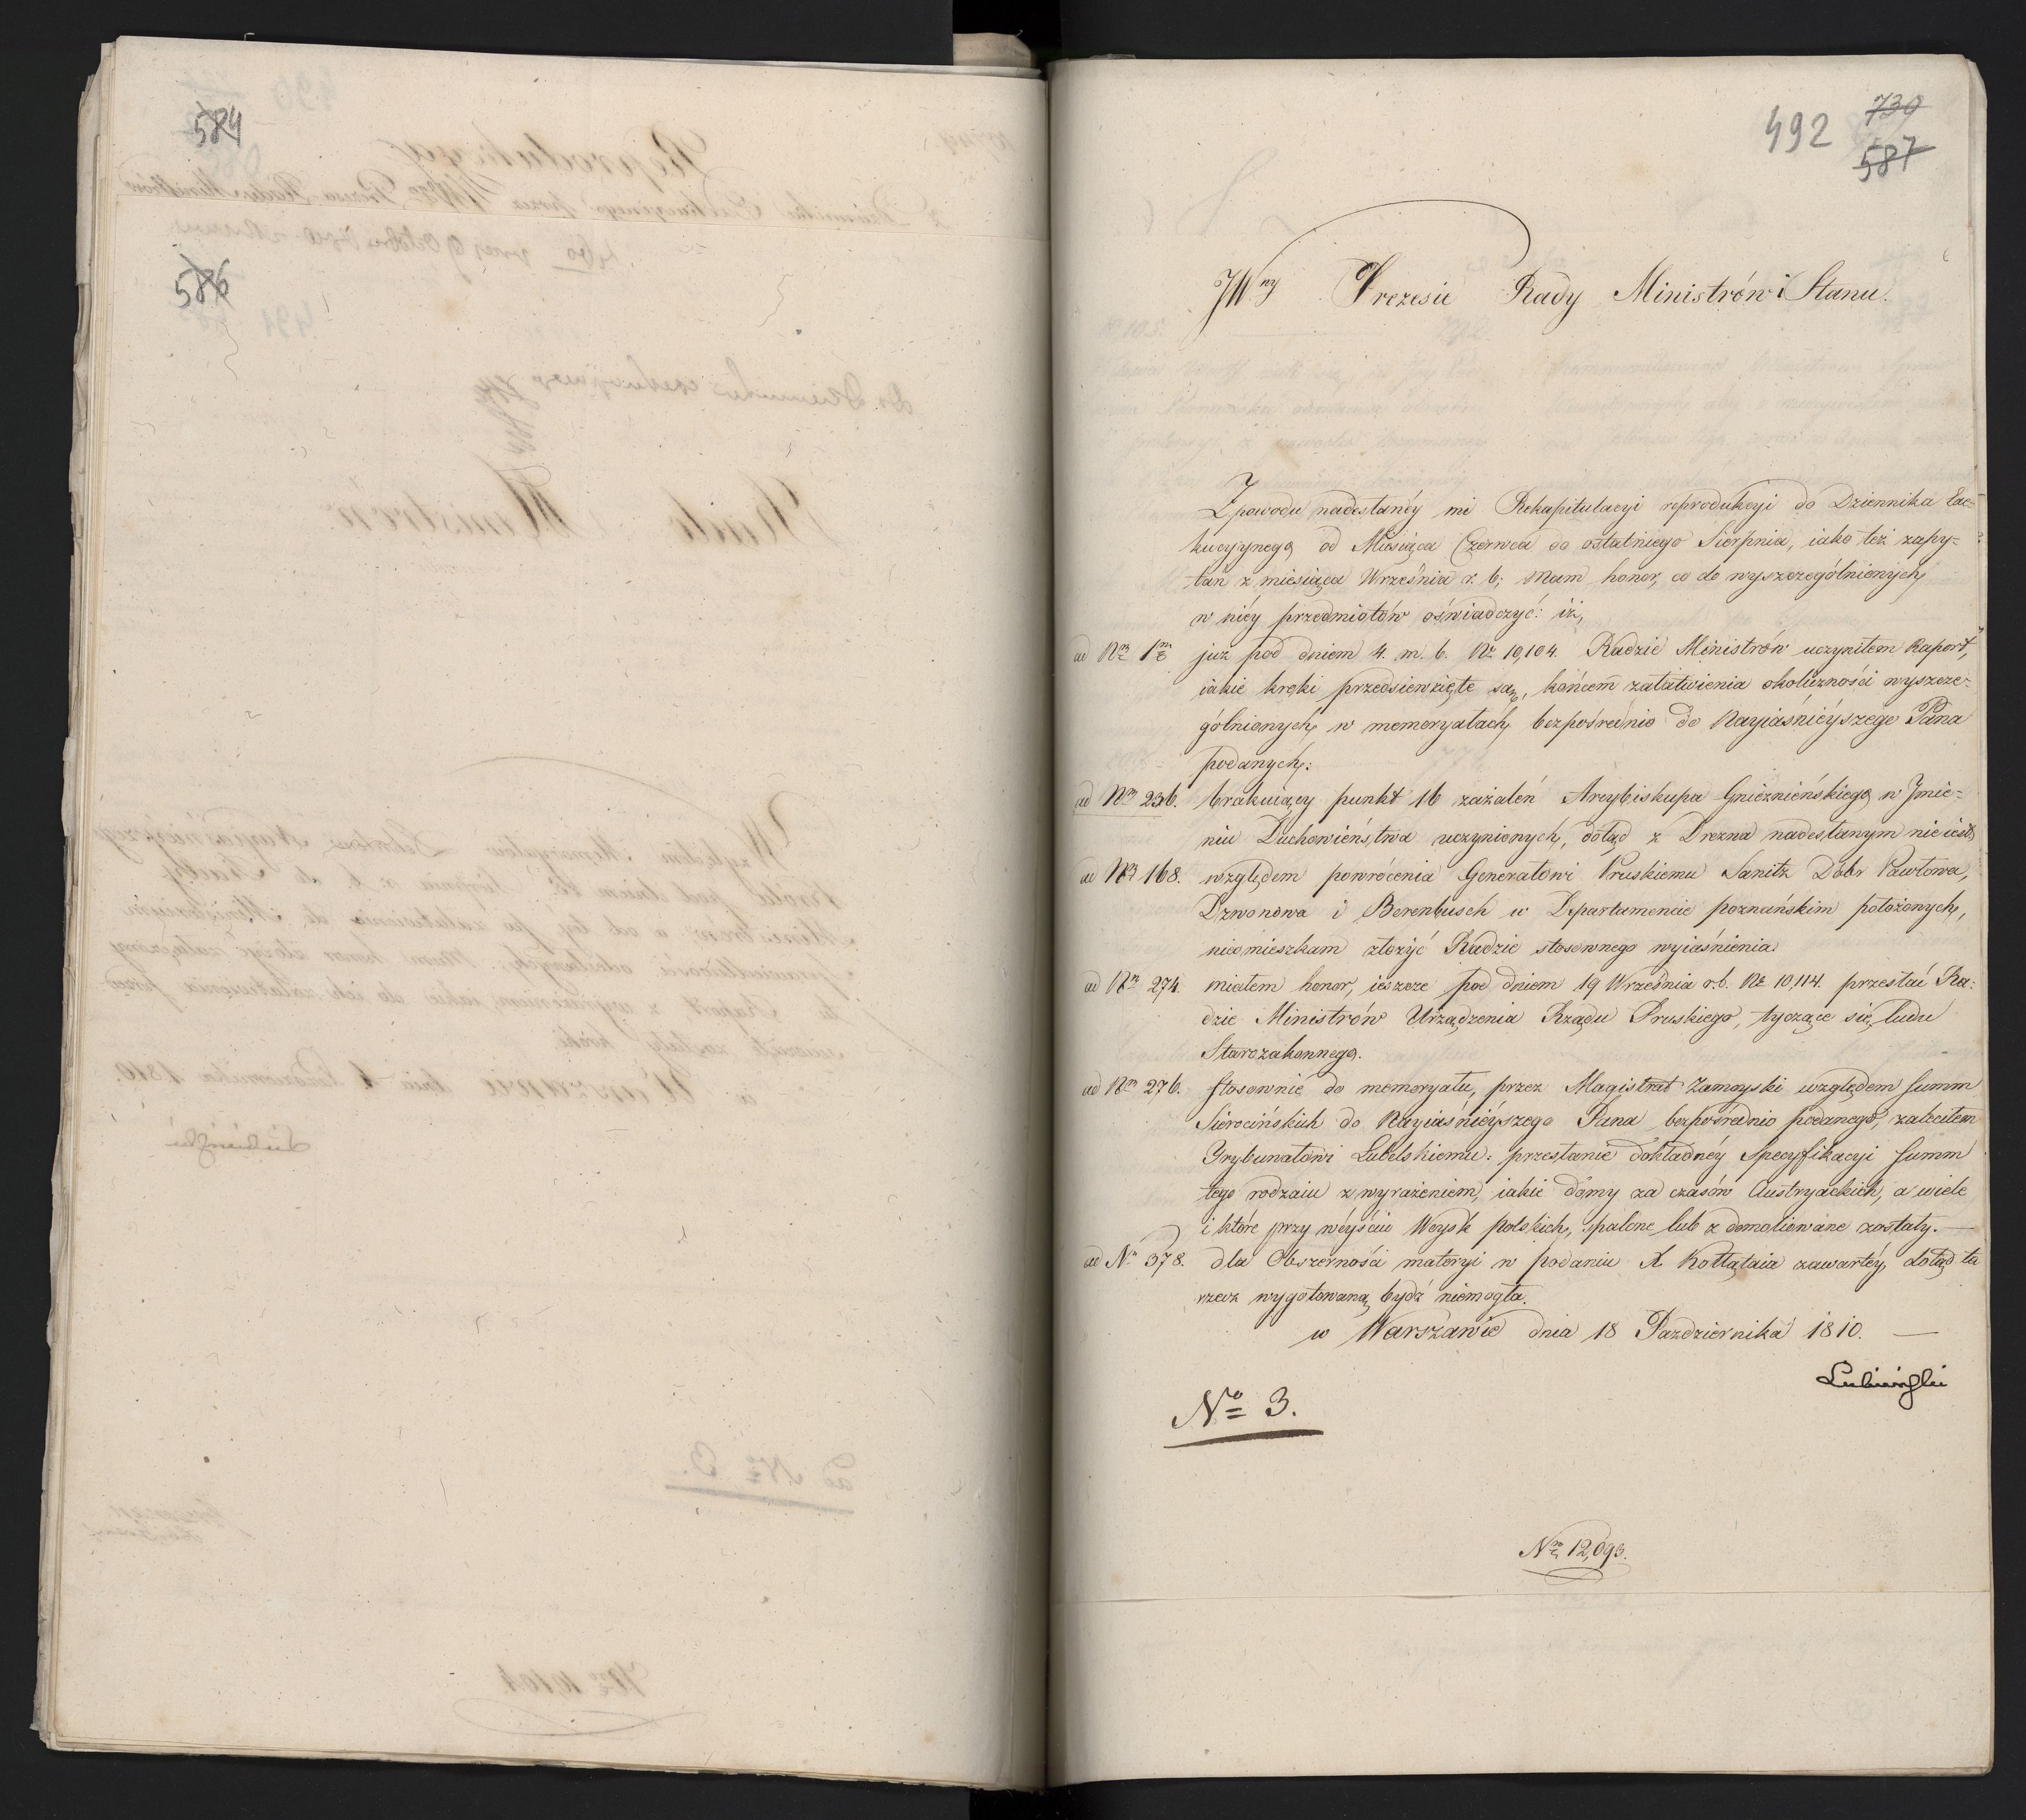 584
586
492 730
587
JW<sup>ny</sup> Prezesie Rady Ministrów i Stanu.
Z powodu nadesłanéy mi Rekapitulacyi reprodukcyi do Dziennika Exe-
kucyynego od Miesiąca Czerwca do ostatniego Sierpnia, iako też zapy-
tań z miesiąca Września r. b; mam honor, co do wyszczególnionych
w niéy przedmiotów oświadczyć: iż,
ad N<sup>m</sup> 1<sup>m</sup> już pod dniem 4. m. b. N<sup>r</sup> 10,104. Radzie Ministrów uczyniłem Raport,
iakie kroki przedsiewzięte są, końcem załatwienia okoliczności wyszcze-
gólnionych, w memoryałach, bezpośrednio do Nayiaśniéyszego Pana
podanych:
ad N<sup>m</sup> 236. brakuiący punkt 16 zażaleń Arcybiskupa Gnieźnieńskiego w Jmie-
niu Duchowieństwa uczynionych, dotąd z Drezna nadesłanym nie iest,
ad N<sup>m</sup> 168. względem powrócenia Generałowi Pruskiemu Sanitz Dóbr Pawłowa,
Dzwonowa i Berenbusch w Departamencie poznańskim położonych,
nieomieszkam złożyć Radzie stosownego wyiaśnienia.
ad N<sup>m</sup> 274. miałem honor, ieszcze pod dniem 19 Września r. b. N<sup>r</sup> 10,114. przesłać Ra-
dzie Ministrów Urządzenia Rządu Pruskiego, tyczące się ludu
Starozakonnego.
ad N<sup>m</sup> 276. stosownie do memoryału, przez Magistrat Zamoyski względem summ
Sierocińskich do Nayiaśniéyszego Pana bezpośrednio podanego, zaleciłem
Trybunałowi Lubelskiemu: przesłanie dokładnéy Specyfikacyi summ
tego rodzaiu z wyrażeniem, iakie domy za czasów Austryackich, a wiele
i które przy wéyściu Woysk polskich, spalone lub zdemoliowane zostały. —
ad N<sup>m</sup> 378. dla Obszerności materyi w podaniu X Kołłątaia zawartéy, dotąd ta
rzecz wygotowaną bydź niemogła.
w Warszawie dnia 18 Pazdziernika 1810. —
Lubieński
N<sup>o</sup> 3.
N<sup>r</sup> 12,093.